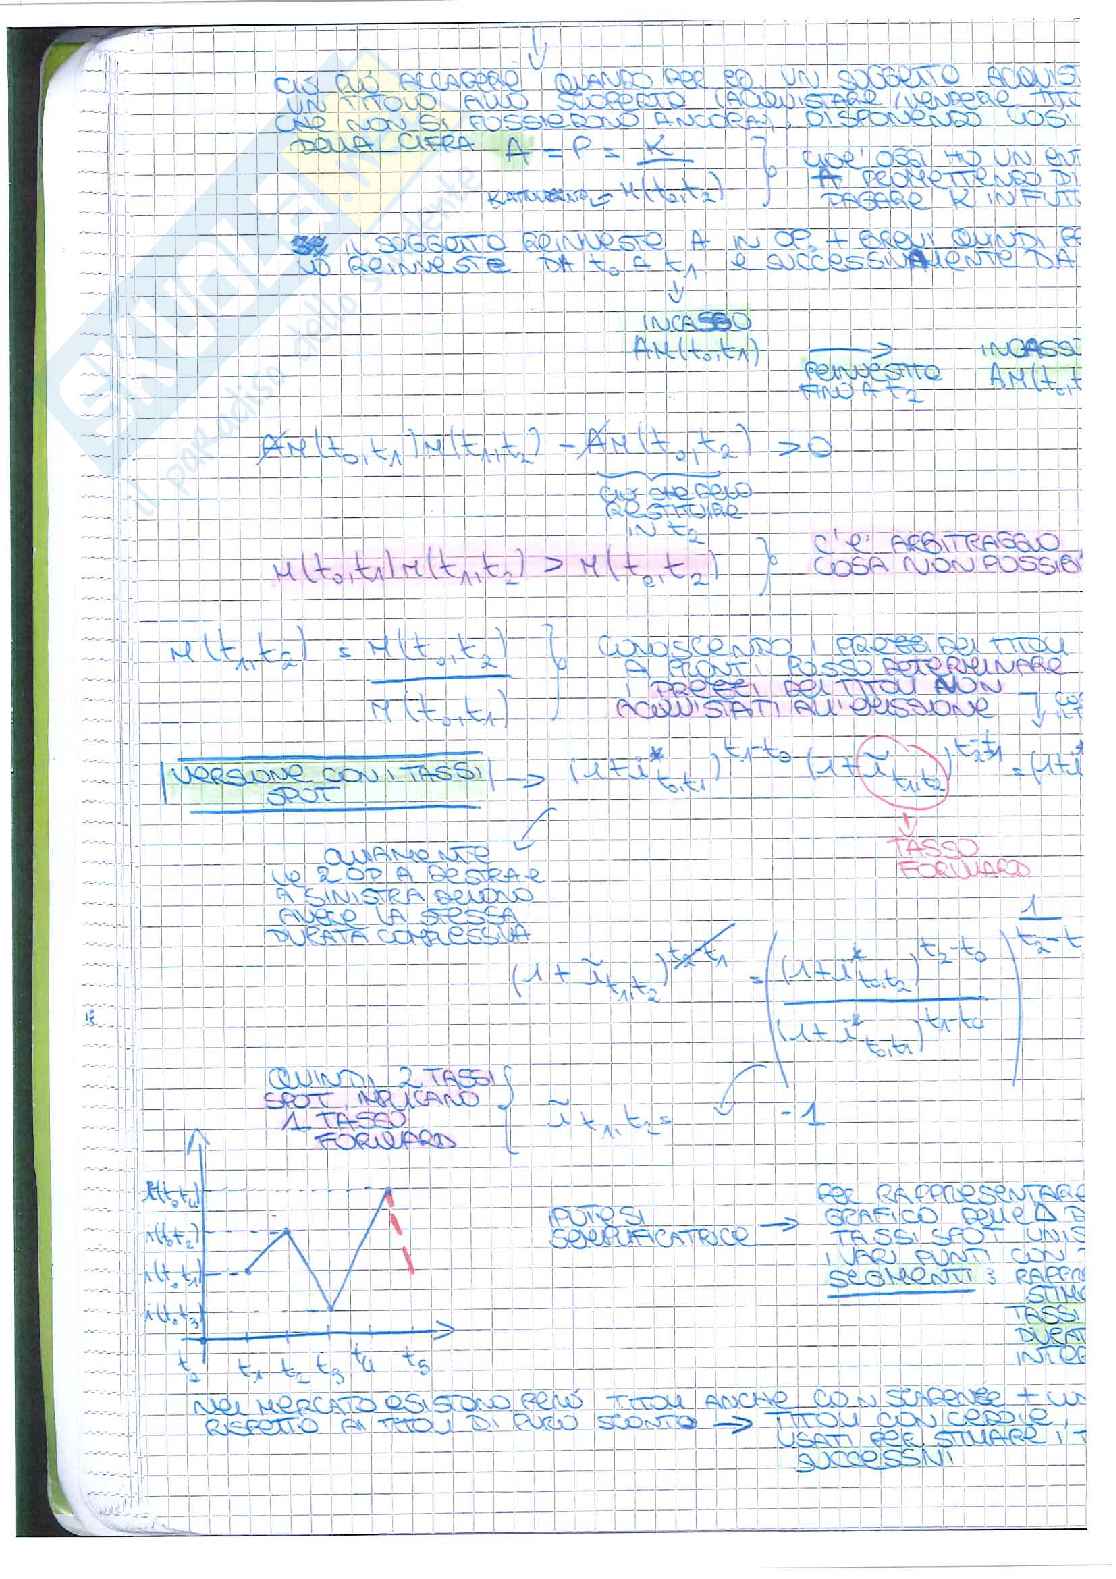 CIÒ PUÒ ACCADERE QUANDO PER ES. UN SOGGETTO ACQUIST
UN TITOLO ALLO SCOPERTO (ACQUISTARE/VENDERE TITO
CHE NON SI POSSIEDONO ANCORA), DISPONENDO COSÌ
DELLA CIFRA A = P = K / M(t₀,t₂)
CIOÈ OGGI HO UN ENT
A PROMETTENDO DI
PAGARE K IN FUTU
IL SOGGETTO REINVESTE A IN OP. + BREVI QUINDI
LO REINVESTE DA t₀ A t₁ E SUCCESSIVAMENTE DA
INCASSO
AM(t₀,t₁)
REINVESTITO
FINO A t₂
INCASSO
AM(t₀,t
AM(t₀,t₁)M(t₁,t₂) - AM(t₀,t₂) > 0
CIÒ CHE DEVO
RESTITUIRE
IN t₂
M(t₀,t₁)M(t₁,t₂) > M(t₀,t₂)
C'È ARBITRAGGIO
COSA NON POSSIBI
M(t₁,t₂) = M(t₀,t₂) / M(t₀,t₁)
CONOSCENDO I PREZZI DEI TITOLI
A PRONTI POSSO DETERMINARE
I PREZZI DEI TITOLI NON
ACQUISTATI ALL'EMISSIONE
VERSIONE CON I TASSI
SPOT
→ (1+i*t₀,t₁)^t₁-t₀ (1+ĩt₁,t₂)^t₂-t₁ = (1+i*
TASSO
FORWARD
OVVIAMENTE
LE 2 OP A DESTRA E
A SINISTRA DEVONO
AVERE LA STESSA
DURATA COMPLESSIVA
(1+ĩt₁,t₂)^t₂-t₁ = ((1+i*t₀,t₂)^t₂-t₀ / (1+i*t₀,t₁)^t₁-t₀)^1/t₂-t
QUINDI 2 TASSI
SPOT IMPLICANO
1 TASSO
FORWARD
ĩt₁,t₂ = -1
i(t₀,t₄)
i(t₀,t₂)
i(t₀,t₁)
i(t₀,t₃)
t₀ t₁ t₂ t₃ t₄ t₅
IPOTESI
SEMPLIFICATRICE →
PER RAPPRESENTARE
GRAFICO DELLA D
TASSI SPOT UNISC
I VARI PUNTI CON
SEGMENTI: RAPPR
TASSI
DURAT
INTER
NEL MERCATO ESISTONO PERÒ TITOLI ANCHE CON SCADENZE + LUN
RISPETTO AI TITOLI DI PURO SCONTO → TITOLI CON CEDOLE,
USATI PER STIMARE I T
SUCCESSIVI